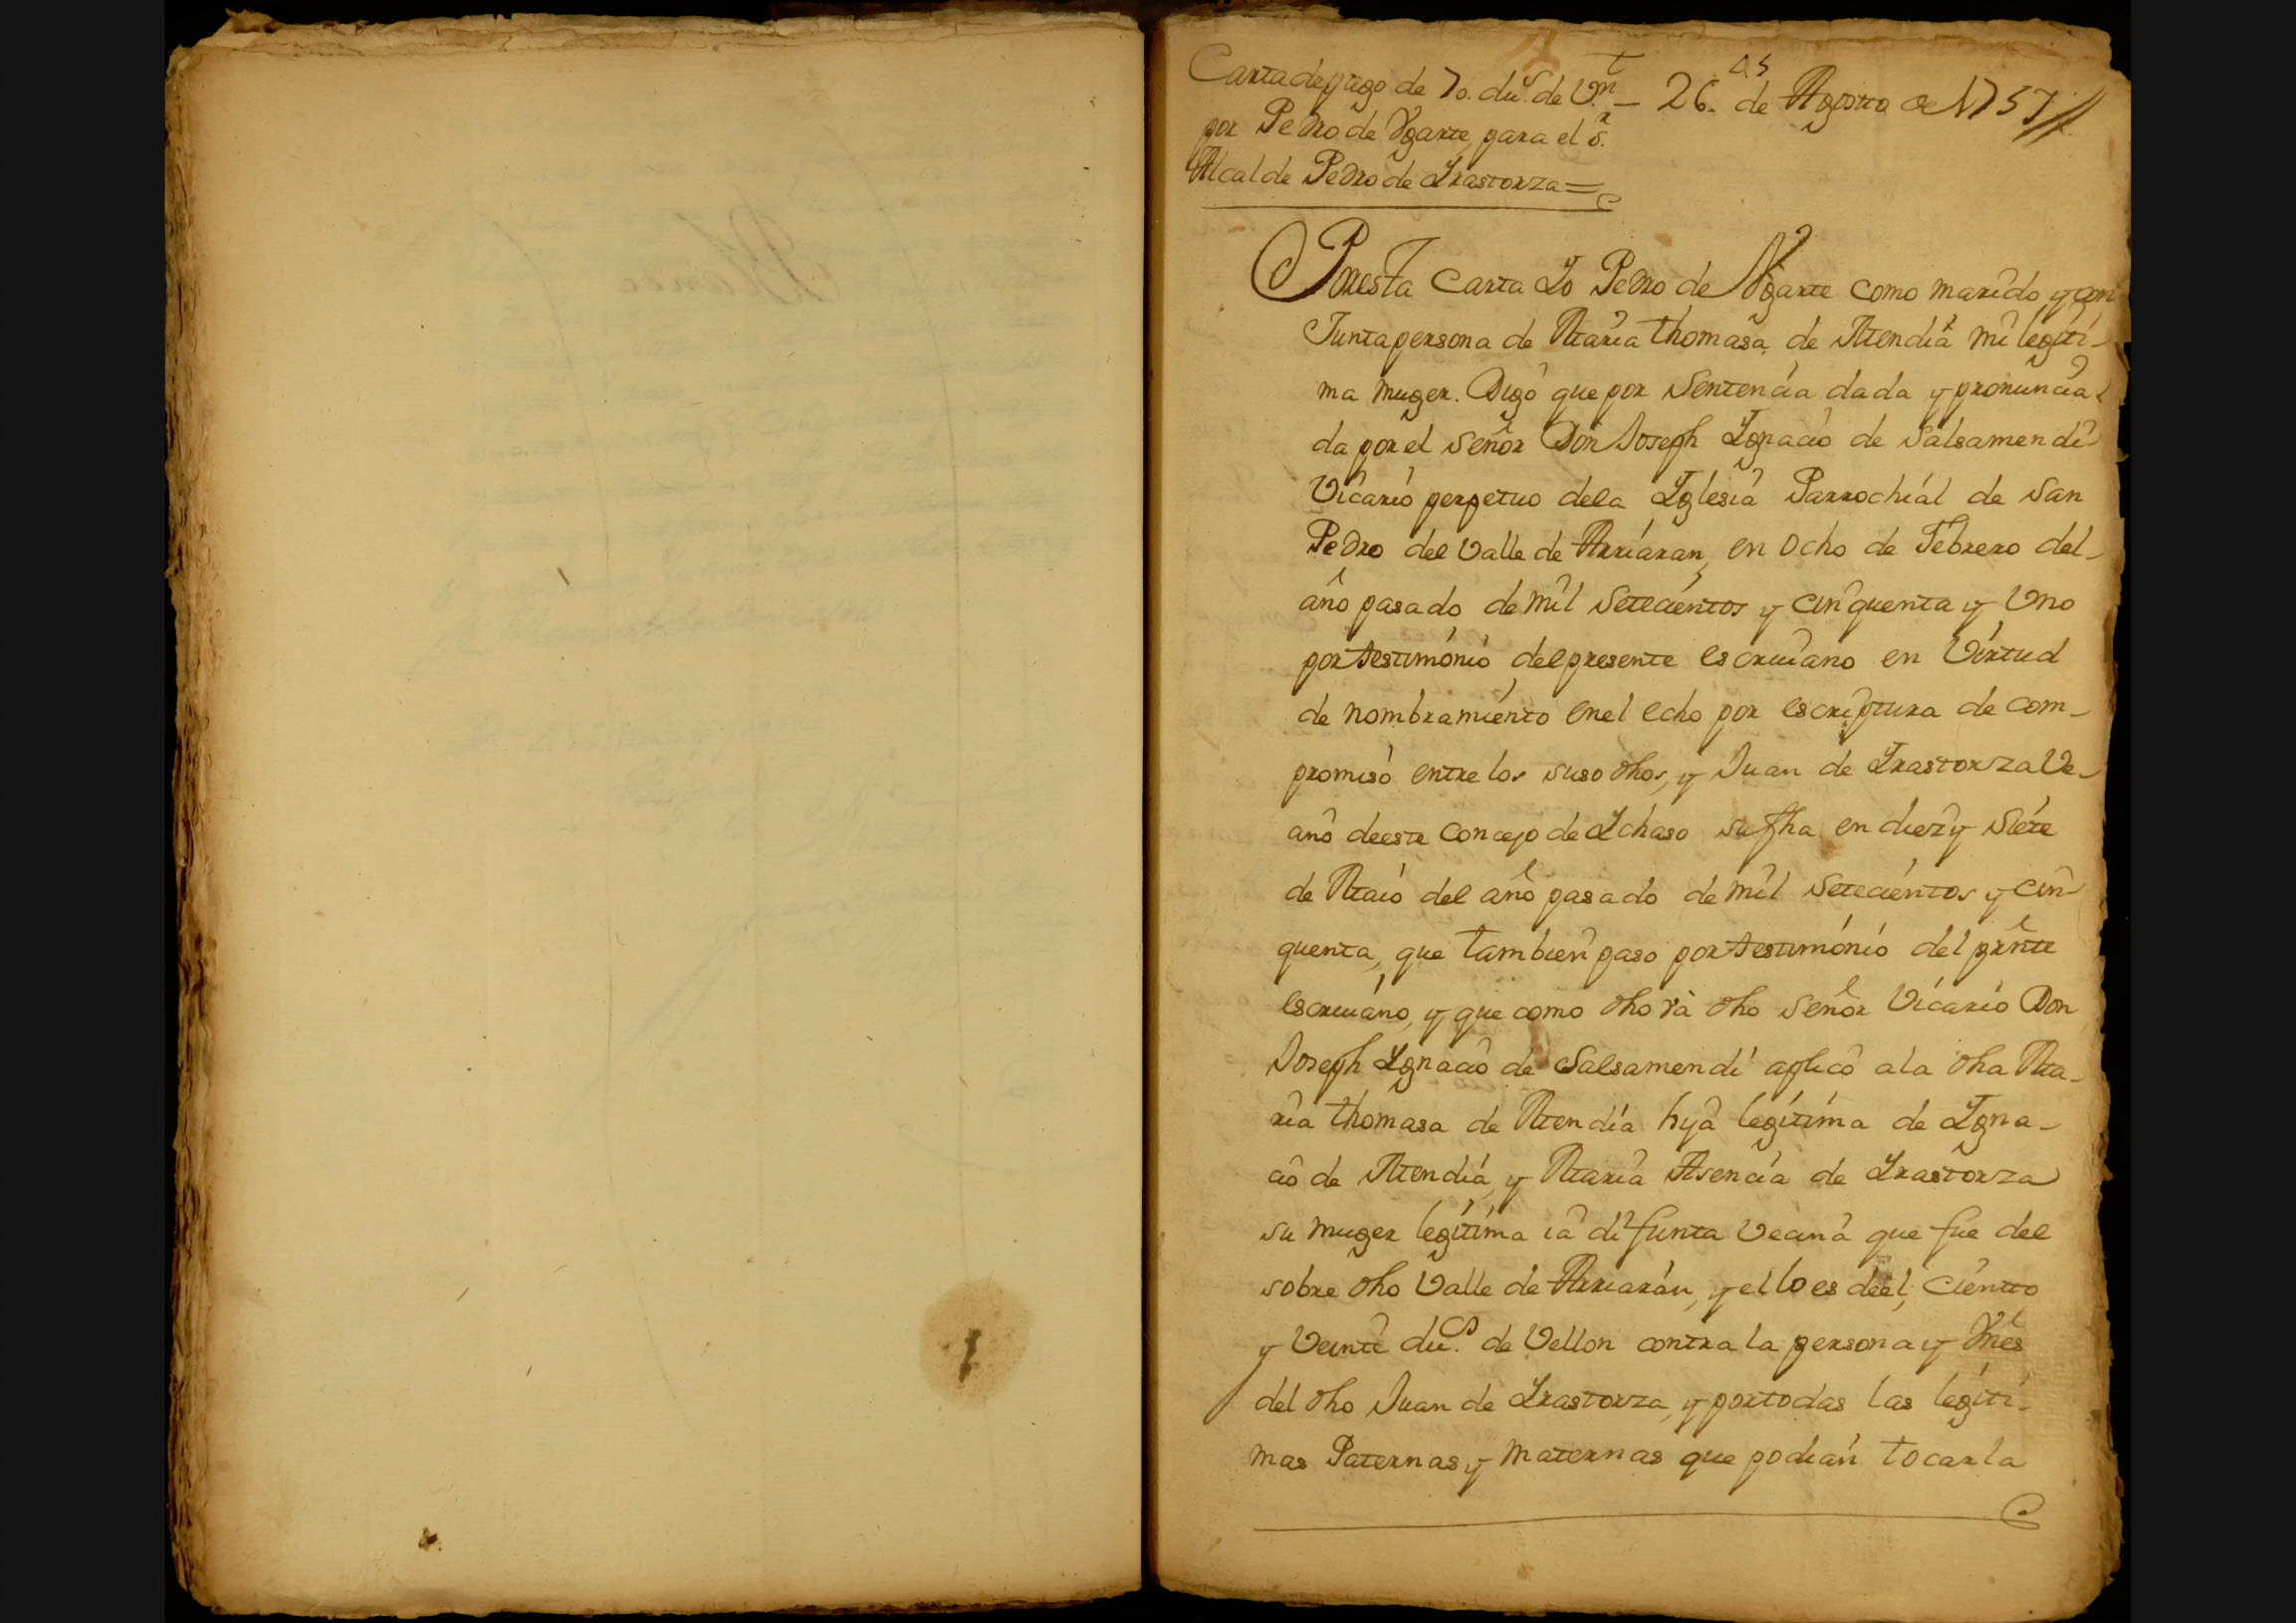 Carta de pago de 70. du.s de V.n — 26. de Agosto de 1757//
por Pedro de Vgarte, para el s.r
Alcalde Pedro de Yrastorza =
Por esta Carta Yo Pedro de Vgarte como marido y con
Junta persona de Maria thomasa de Mendia mi legiti-
ma muger. Digo que por Sentencia dada y pronuncia
da por el Señor Don Joseph Ygnacio de Salsamendi
Vicario perpetuo dela Yglesia Parrochial de San
Pedro del Valle de Arriaran, en Ocho de Febrero del
año pasado de mil Setecientos y cinquenta y Uno
por testimonio del presente escriuano en Virtud
de nombramiento enel echo por escriptura de com-
promiso entre los suso dhos, y Juan de Yrastorza Ve-
cino deeste Concejo de Ychaso su fha en diez y Siete
de Maio del año pasado de mil Setecientos y cin-
quenta, que tambien paso por testimonio del prnte
escriuano, y que como dho và dho Señor Vicario Don
Joseph Ygnacio de Salsamendi aplicò ala dha Ma-
ria thomasa de Mendia hija legitima de Ygna-
cio de Mendia, y Maria Asencia de Yrastorza
su muger legitima ia difunta Vecina que fue del
sobre dho Valle de Arriaran, y el lo es deel, Ciento
y Veinte du.s de Vellon contra la persona y Vnes
del dho Juan de Yrastorza, y por todas las legiti-
mas Paternas y Maternas que podian tocarla